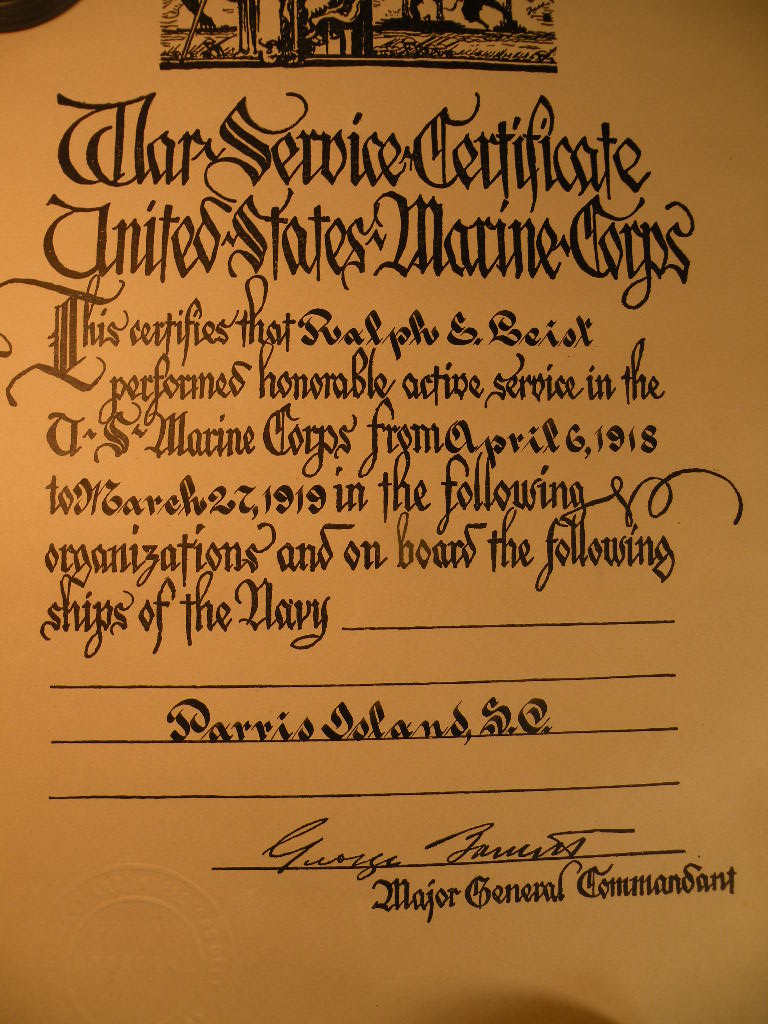 War Service Certificate
United States Marine Corps
This certifies that Ralph E. Leist
performed honorable active service in the
U-S-Marine Corps from April 6, 1918
to March 27, 1919 in the following
organizations and on board the following
ships of the Navy
Parris Island, S.C.
George Barnett
Major General Commandant